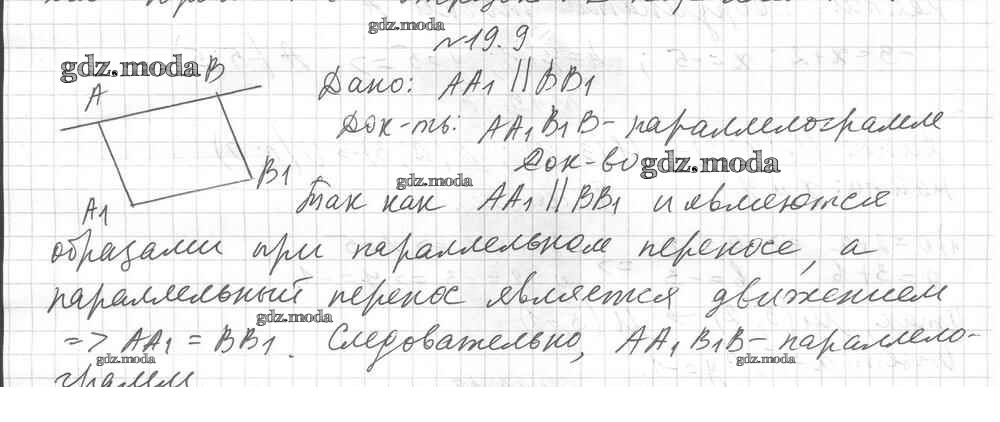 gdz.moda
№19.9
gdz.moda
A
B
A1
B1
Дано: AA1 || BB1
Док-ть: AA1B1B - параллелограмм
Док-во gdz.moda
gdz.moda
Так как AA1 || BB1 и являются
образами при параллельном переносе, а
параллельный перенос является движением
gdz.moda
=> AA1 = BB1. Следовательно, AA1B1B - параллело-
gdz.moda
gdz.moda
грамм